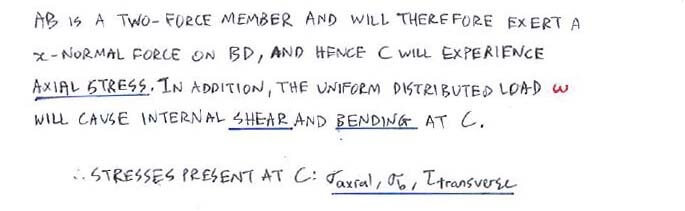 AB IS A TWO-FORCE MEMBER AND WILL THEREFORE EXERT A
x-NORMAL FORCE ON BD, AND HENCE C WILL EXPERIENCE
AXIAL STRESS. IN ADDITION, THE UNIFORM DISTRIBUTED LOAD ω
WILL CAUSE INTERNAL SHEAR AND BENDING AT C.
∴ STRESSES PRESENT AT C: σaxial, σb, τtransverse